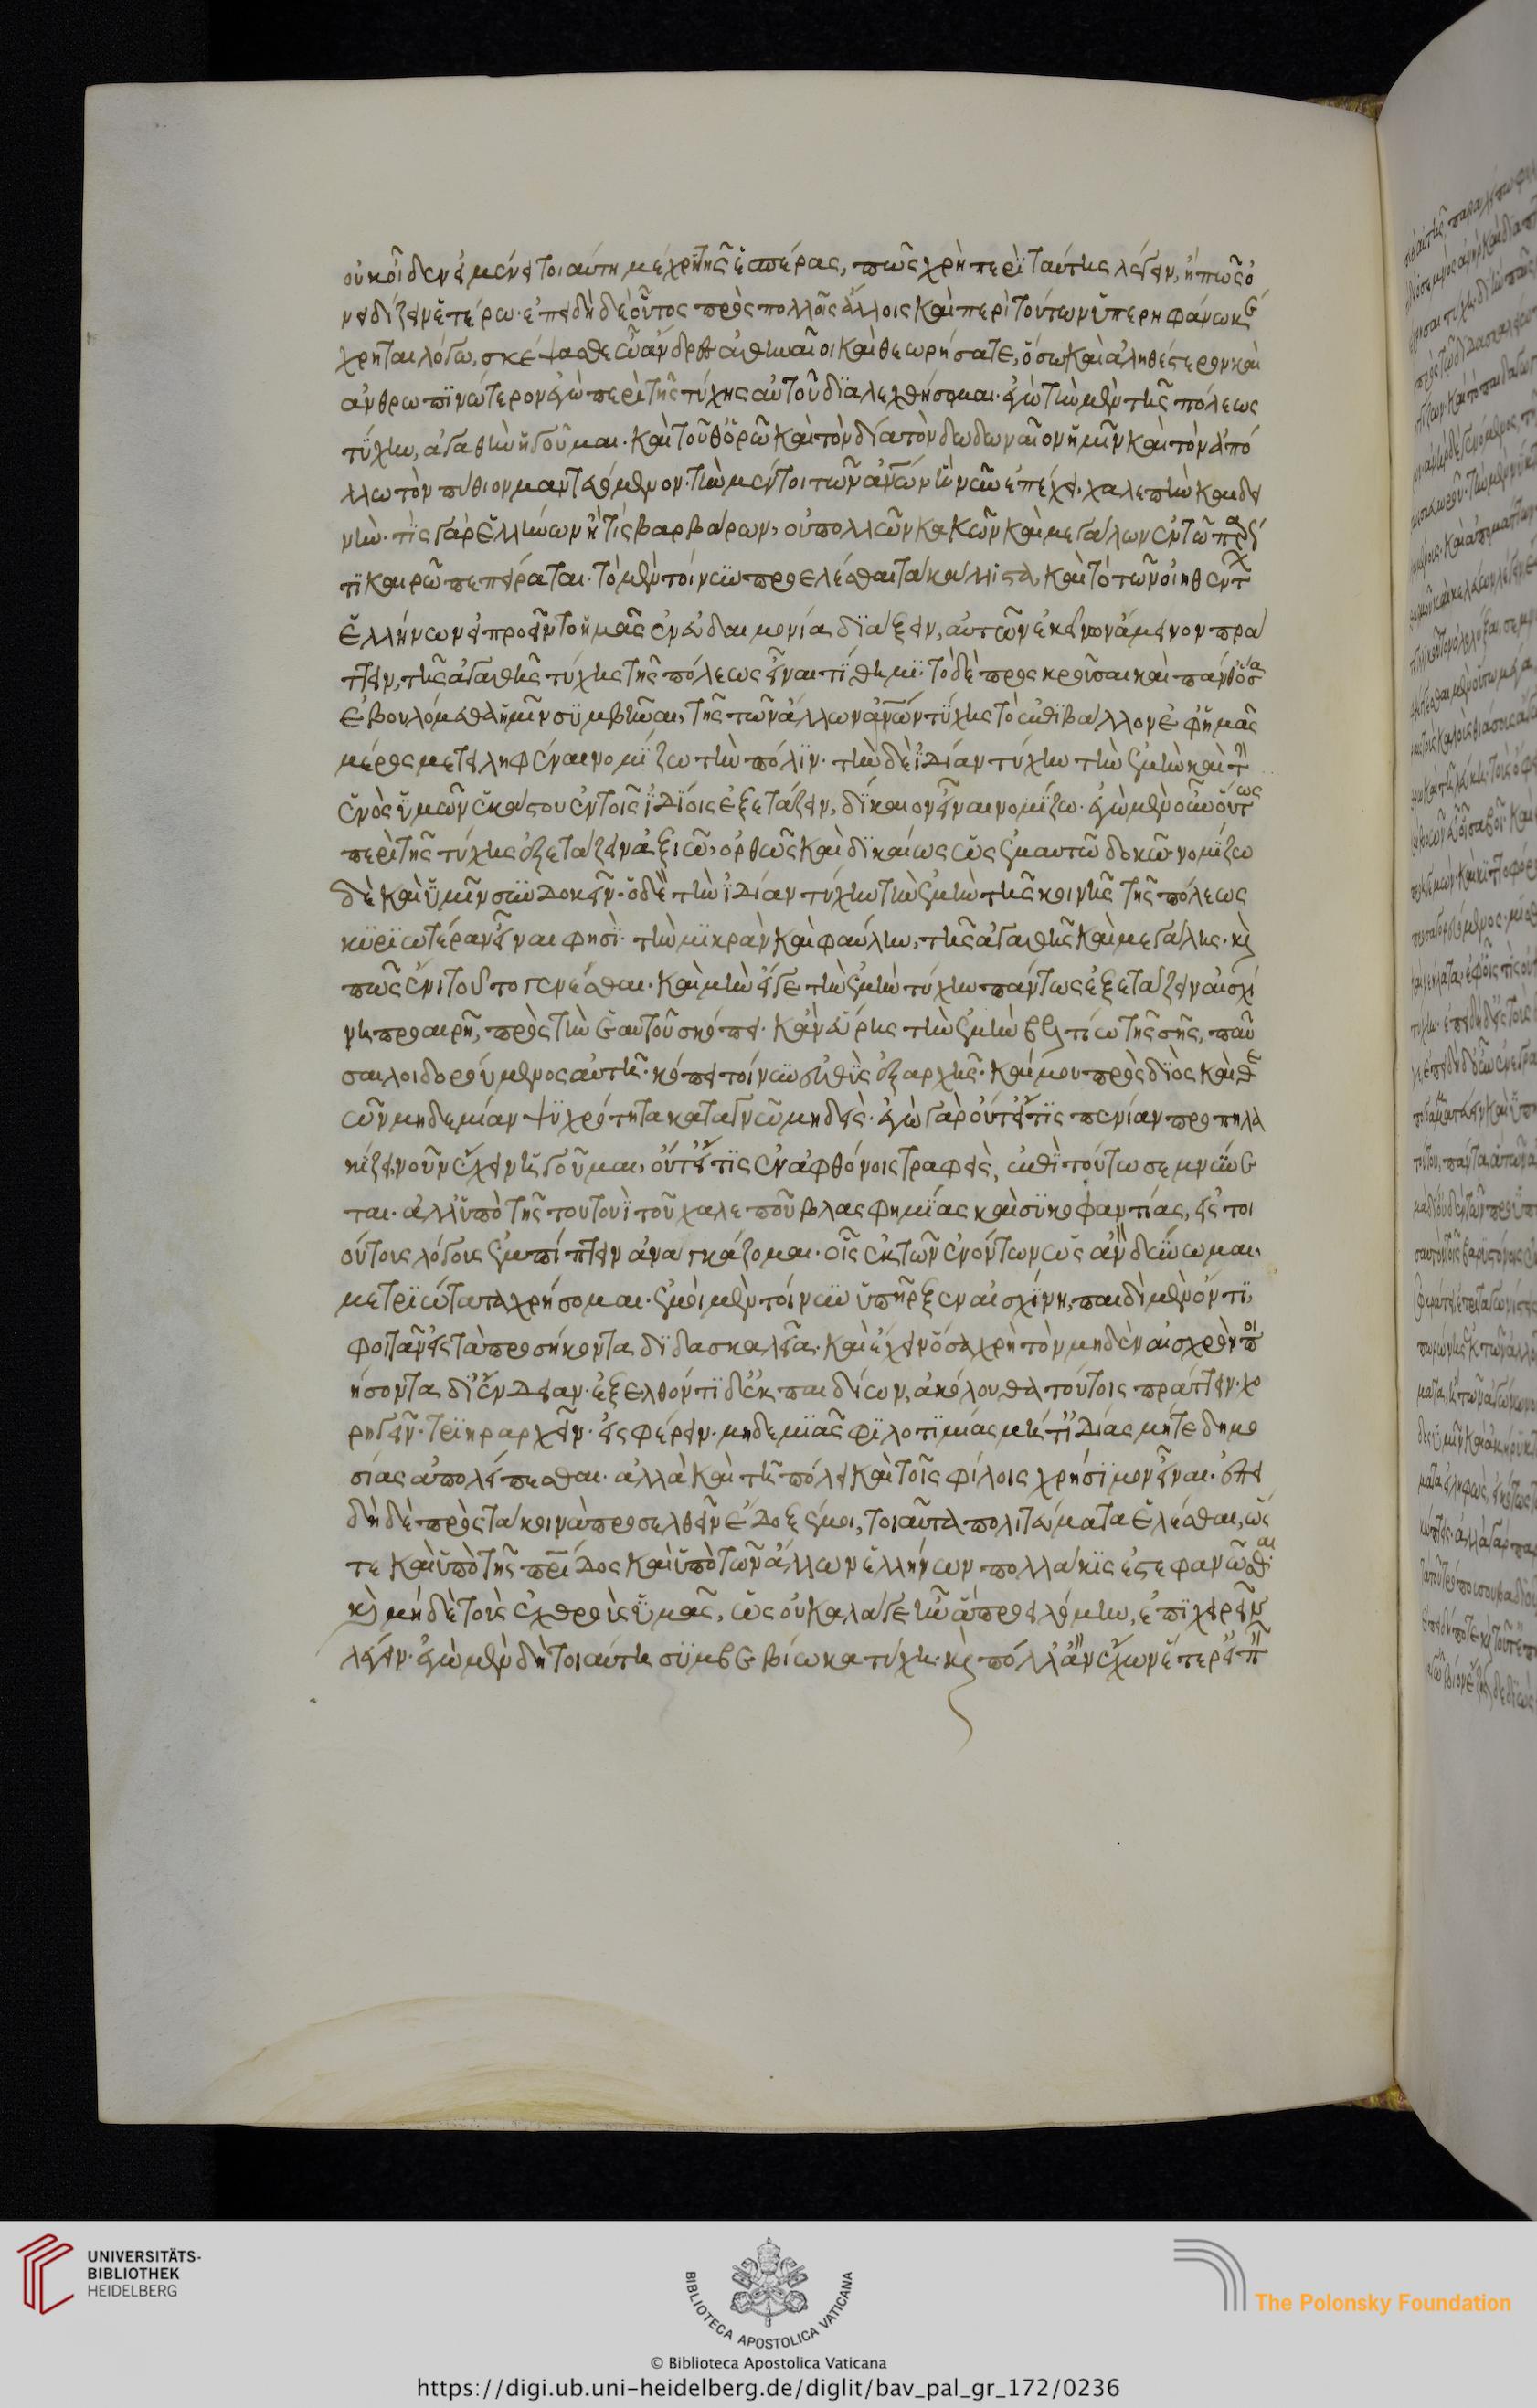 οὐκ οἶδεν εἰ μενεῖ τοιαύτη μέχρι τῆς ἑσπέρας, πῶς χρὴ περὶ ταύτης λέγειν, ἢ πῶς ὀ
νειδίζειν ἑτέρω· ἐπειδὴ δὲ οὗτος πρὸς πολλοῖς ἄλλοις καὶ περὶ τούτων ὑπερηφάνως
χρῆται λόγω, σκέψασθε ὦ ἄνδρες ἀθηναῖοι καὶ θεωρήσατε, ὅσω καὶ ἀληθέστερον καὶ
ἀνθρωπινώτερον ἐγὼ περὶ τῆς τύχης αὐτοῦ διαλεχθήσομαι· ἐγὼ τὴν μὲν τῆς πόλεως
τύχην, ἀγαθὴν ἡγοῦμαι· καὶ τοῦθ' ὁρῶ καὶ τὸν δία τὸν δωδωναῖον ἡμῖν καὶ τὸν ἀπό
λλω τὸν πύθιον μαντευόμενον· τὴν μέντοι τῶν ἀνθρώπων ἣ νῦν ἐπέχει, χαλεπὴν καὶ δει
νήν· τίς γὰρ ἑλλήνων ἢ τίς βαρβάρων, οὐ πολλῶν κακῶν καὶ μεγάλων ἐν τῶ παρόν
τι καιρῶ πεπείραται· τὸ μὲν τοίνυν προελέσθαι τὰ κάλλιστα, καὶ τὸ τῶν οἰηθέντων
ἑλλήνων εἰ προεῖντο ἡμᾶς ἐν εὐδαιμονία διάξειν, αὐτῶν ἐκείνων ἄμεινον πρά
ττειν, τῆς ἀγαθῆς τύχης τῆς πόλεως εἶναι τίθημι· τὸ δὲ προσκροῦσαι καὶ πάνθ' ὅσα
ἐβουλόμεθα ἡμῖν συμβῆναι, τῆς τῶν ἄλλων ἀνθρώπων τύχης τὸ ἐπιβάλλον ἐφ' ἡμᾶς
μέρος μετειληφέναι νομίζω τὴν πόλιν· τὴν δὲ ἰδίαν τύχην τὴν ἐμὴν καὶ τὴν
ἑνὸς ὑμῶν ἑκάστου ἐν τοῖς ἰδίοις ἐξετάζειν, δίκαιον εἶναι νομίζω· ἐγὼ μὲν οὖν οὕτως
περὶ τῆς τύχης ἐξετάζειν ἀξιῶ, ὀρθῶς καὶ δικαίως ὡς ἐμαυτῶ δοκῶ· νομίζω
δὲ καὶ ὑμῖν συνδοκεῖν· ὁ δὲ τὴν ἰδίαν τύχην τὴν ἐμὴν τῆς κοινῆς τῆς πόλεως
κυριωτέραν εἶναι φησὶ· τὴν μικρὰν καὶ φαύλην, τῆς ἀγαθῆς καὶ μεγάλης· καὶ
πῶς ἔνι τοῦτο γενέσθαι· καὶ μὴν εἴγε τὴν ἐμὴν τύχην πάντως ἐξετάζειν αἰσχί
νη προαιρῆ, πρὸς τὴν ἑαυτοῦ σκόπει· κἂν εὕρης τὴν ἐμὴν βελτίω τῆς σῆς, παῦ
σαι λοιδορούμενος αὐτῆ· σκόπει τοίνυν εὐθὺς ἐξ ἀρχῆς· καί μου πρὸς διὸς καὶ θε
ῶν μηδεμίαν ψυχρότητα καταγνῶ μηδεὶς· ἐγὼ γὰρ οὔτ' εἴ τις πενίαν προπηλα
κίζει νοῦν ἔχειν ἡγοῦμαι, οὔτ' εἴ τις ἐν ἀφθόνοις τραφεὶς, ἐπὶ τούτω σεμνύνε
ται· ἀλλ' ὑπὸ τῆς τουτουὶ τοῦ χαλεποῦ βλασφημίας καὶ συκοφαντίας, εἰς τοι
ούτους λόγους ἐμπίπτειν ἀναγκάζομαι· οἷς ἐκ τῶν ἐνόντων ὡς ἂν δύνωμαι,
μετριώτατα χρήσομαι· ἐμοὶ μὲν τοίνυν ὑπῆρξεν αἰσχίνη, παιδὶ μὲν ὄντι,
φοιτᾶν εἰς τὰ προσήκοντα διδασκαλεῖα· καὶ ἔχειν ὅσα χρὴ τὸν μηδὲν αἰσχρὸν ποι
ήσοντα δι' ἔνδειαν· ἐξελθόντι δ' ἐκ παιδίων, ἀκόλουθα τούτοις πράττειν· χο
ρηγεῖν· τριηραρχεῖν· εἰσφέρειν· μηδεμιᾶς φιλοτιμίας μήτ' ἰδίας μήτε δημο
σίας ἀπολείπεσθαι· ἀλλὰ καὶ τῆ πόλει καὶ τοῖς φίλοις χρήσιμον εἶναι· ἐπει
δὴ δὲ πρὸς τὰ κοινὰ προσελθεῖν ἔδοξέ μοι, τοιαῦτα πολιτεύματα ἑλέσθαι, ὥσ
τε καὶ ὑπὸ τῆς πατρίδος καὶ ὑπὸ τῶν ἄλλων ἑλλήνων πολλάκις ἐστεφανῶσθαι·
καὶ μηδὲ τοὺς ἐχθροὺς ὑμᾶς, ὡς οὐ καλά γε ἦν ἃ προειλόμην, ἐπιχειρεῖν
λέγειν· ἐγὼ μὲν δὴ τοιαύτη συμβεβίωκα τύχη· καὶ πόλλ' ἂν ἔχων ἕτερ' εἰπεῖν
UNIVERSITÄTS-
BIBLIOTHEK
HEIDELBERG
BIBLIOTECA APOSTOLICA VATICANA
The Polonsky Foundation
© Biblioteca Apostolica Vaticana
https://digi.ub.uni-heidelberg.de/diglit/bav_pal_gr_172/0236